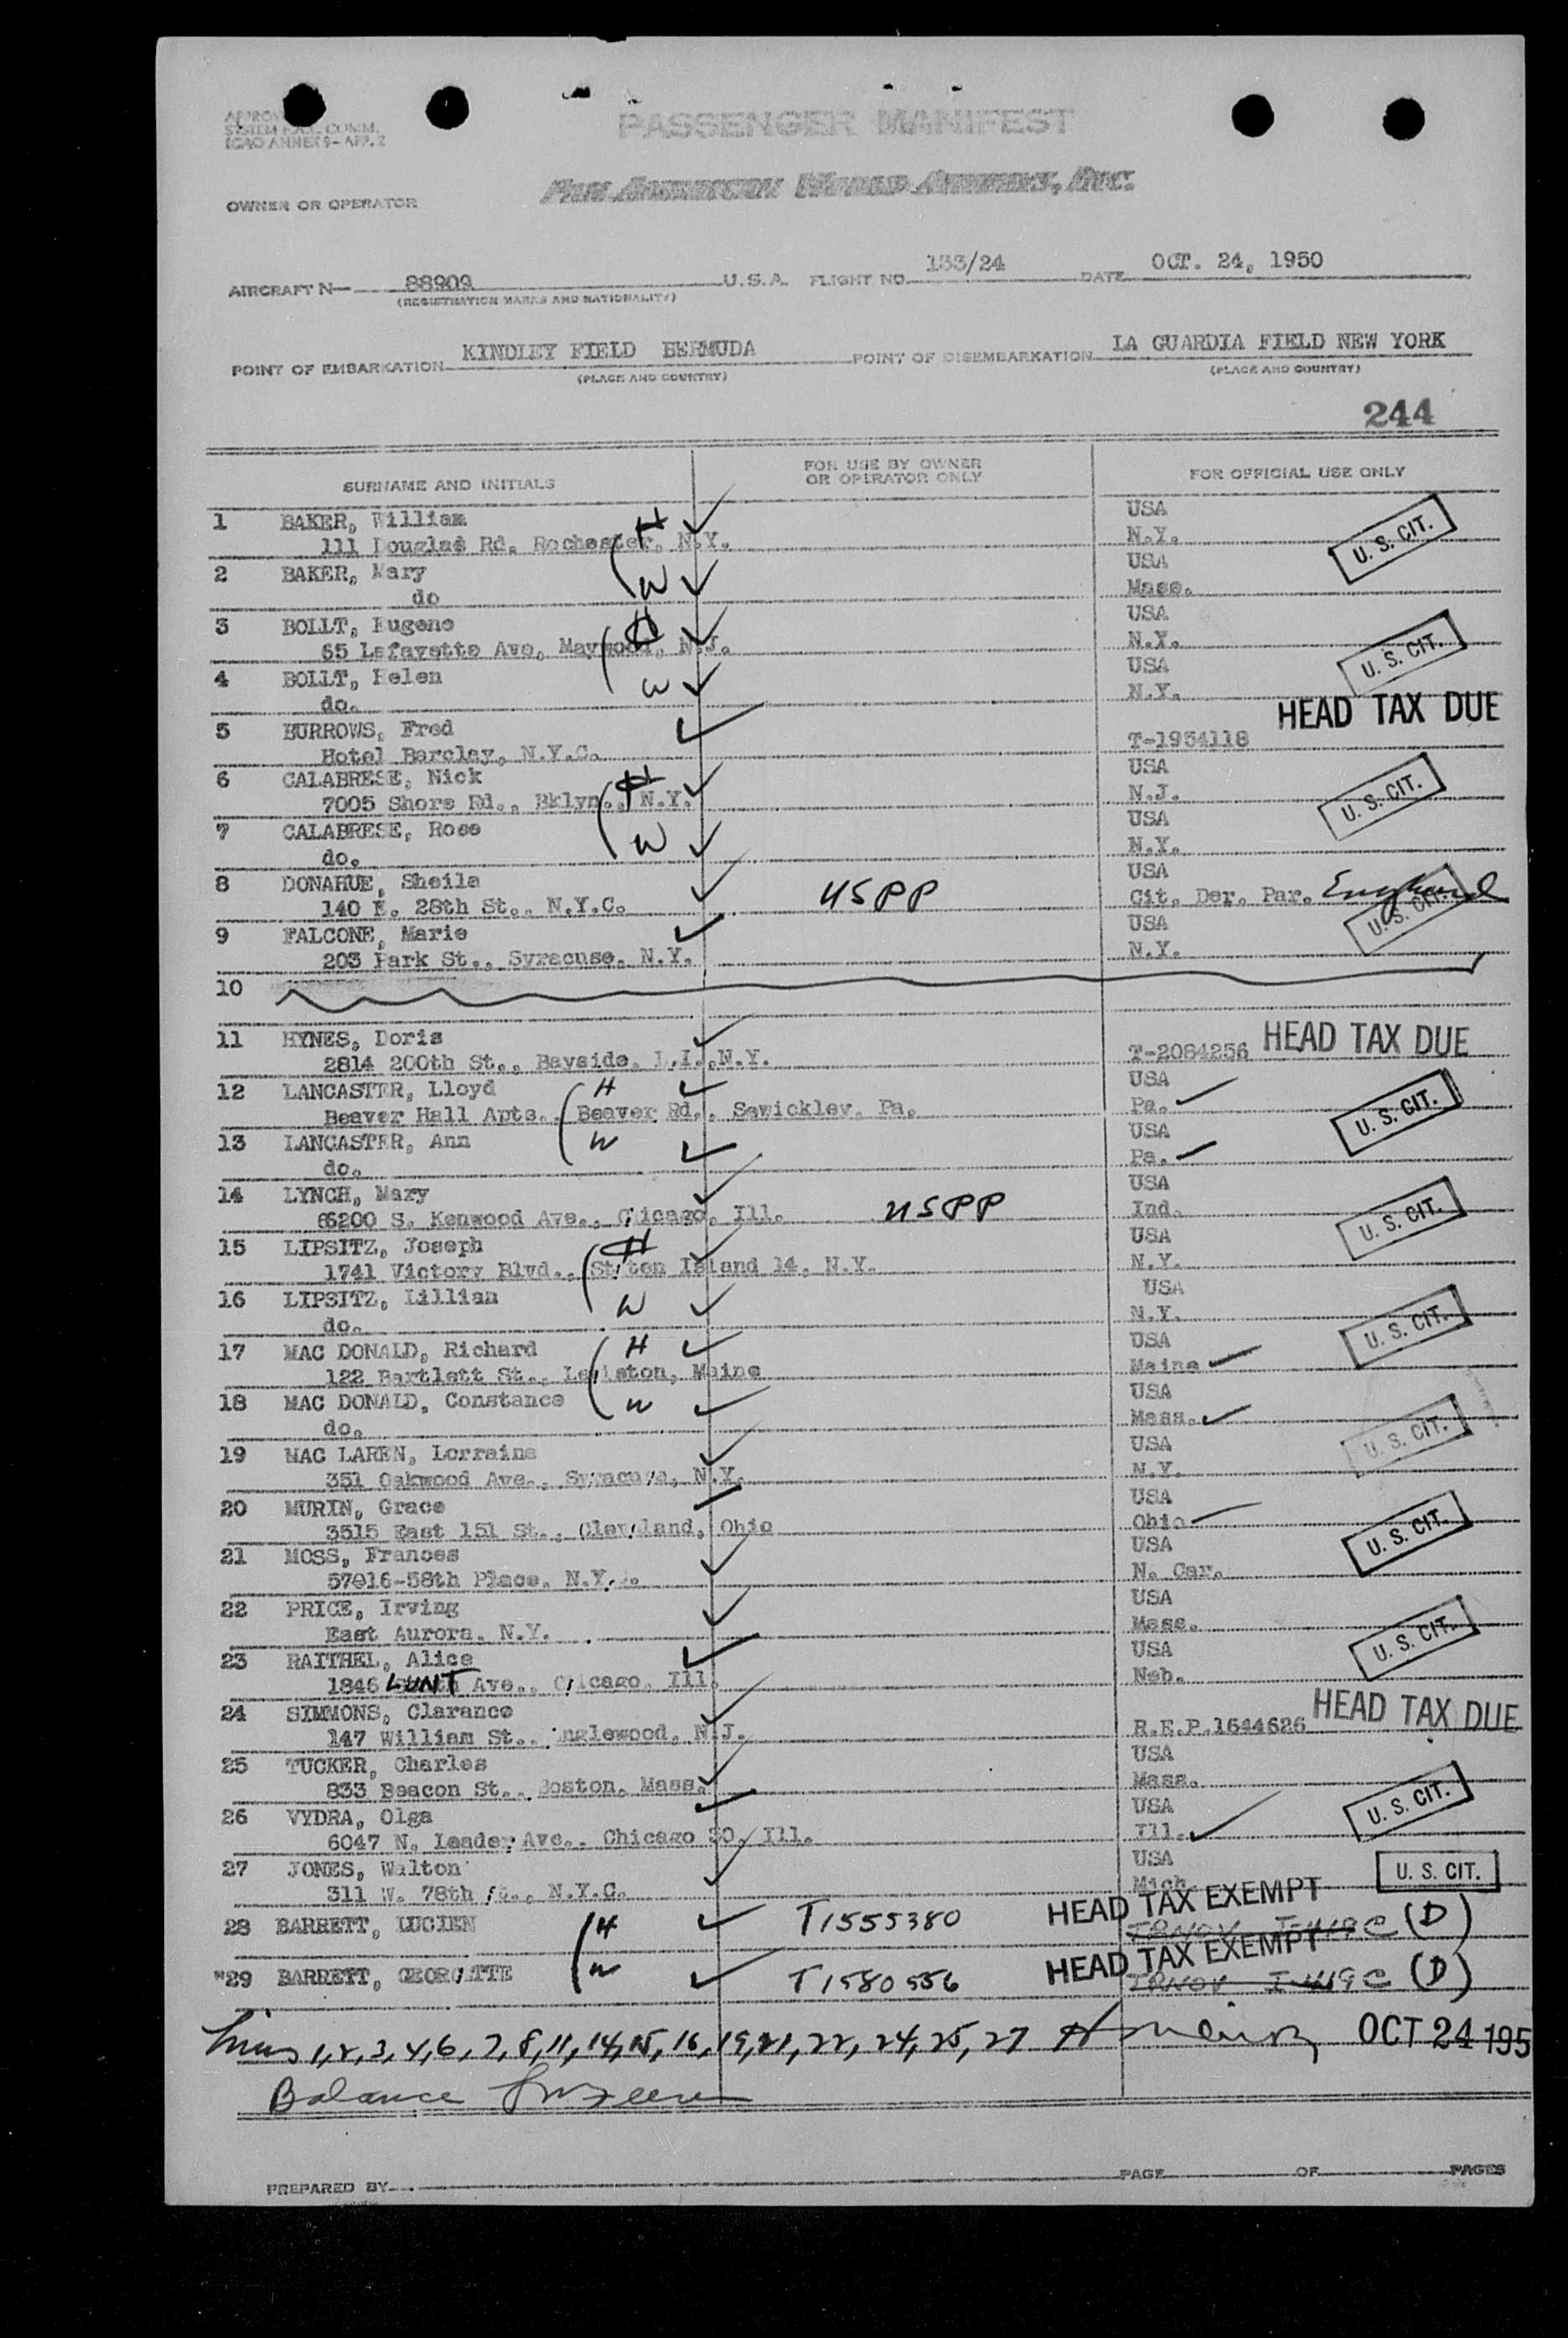 SYSTEM F.A.L. COMM.
ICAO ANNEX 9- APP. 2
PASSENGER MANIFEST
PAN AMERICAN WORLD AIRWAYS, INC.
OWNER OR OPERATOR
AIRCRAFT N- 88909 U.S.A. FLIGHT NO. 133/24 DATE OCT. 24, 1950
(REGISTRATION MARKS AND NATIONALITY)
POINT OF EMBARKATION KINDLEY FIELD BERMUDA POINT OF DISEMBARKATION LA GUARDIA FIELD NEW YORK
(PLACE AND COUNTRY) (PLACE AND COUNTRY)
244
SURNAME AND INITIALS FOR USE BY OWNER OR OPERATOR ONLY FOR OFFICIAL USE ONLY
1 BAKER, William H USA
111 Douglas Rd. Rochester, N.Y. N.Y. U. S. CIT.
2 BAKER, Mary W USA
do Mass.
3 BOLLT, Eugene H USA
65 Lafayette Ave, Maywood, N.J. N.Y. U. S. CIT.
4 BOLLT, Helen W USA
do. N.Y.
5 BURROWS, Fred HEAD TAX DUE
Hotel Barclay, N.Y.C. T-1954118
6 CALABRESE, Nick H USA
7005 Shore Rd., Bklyn., N.Y. N.J. U. S. CIT.
7 CALABRESE, Rose W USA
do. N.Y.
8 DONAHUE, Sheila USA
140 E. 28th St., N.Y.C. USPP Cit. Der. Par. England
9 FALCONE, Marie USA U. S. CIT.
203 Park St., Syracuse, N.Y. N.Y.
10
11 HYNES, Doris HEAD TAX DUE
2814 200th St., Bayside, L.I.,N.Y. T-2084256
12 LANCASTER, Lloyd H USA
Beaver Hall Apts., Beaver Rd., Sewickley, Pa. Pa. U. S. CIT.
13 LANCASTER, Ann W USA
do. Pa.
14 LYNCH, Mary USA
6200 S. Kenwood Ave., Chicago, Ill. USPP Ind. U. S. CIT.
15 LIPSITZ, Joseph H USA
1741 Victory Blvd., Staten Island 14, N.Y. N.Y.
16 LIPSITZ, Lillian W USA
do. N.Y. U. S. CIT.
17 MAC DONALD, Richard H USA
122 Bartlett St., Lewiston, Maine Maine
18 MAC DONALD, Constance W USA
do. Mass. U. S. CIT.
19 MAC LAREN, Lorraine USA
351 Oakwood Ave., Syracuse, N.Y. N.Y.
20 MURIN, Grace USA
3515 East 151 St., Cleveland, Ohio Ohio U. S. CIT.
21 MOSS, Frances USA
57016-58th Place, N.Y. N. Car.
22 PRICE, Irving USA
East Aurora, N.Y. Mass. U. S. CIT.
23 RAITHEL, Alice USA
1846 LUNT Ave., Chicago, Ill. Neb.
24 SIMMONS, Clarance HEAD TAX DUE
147 William St., Englewood, N.J. R.E.P.1644626
25 TUCKER, Charles USA
833 Beacon St., Boston, Mass. Mass.
26 VYDRA, Olga USA U. S. CIT.
6047 N. Leader Ave., Chicago 30, Ill. Ill.
27 JONES, Walton USA U. S. CIT.
311 W. 78th St., N.Y.C. Mich.
28 BARRETT, LUCIEN H T1555380 HEAD TAX EXEMPT (D)
29 BARRETT, GEORGETTE W T1580556 HEAD TAX EXEMPT (D)
Lines 1,2,3,4,6,7,8,11,14,15,16,19,21,22,24,25,27 OCT 24 195
Balance
PREPARED BY PAGE OF PAGES